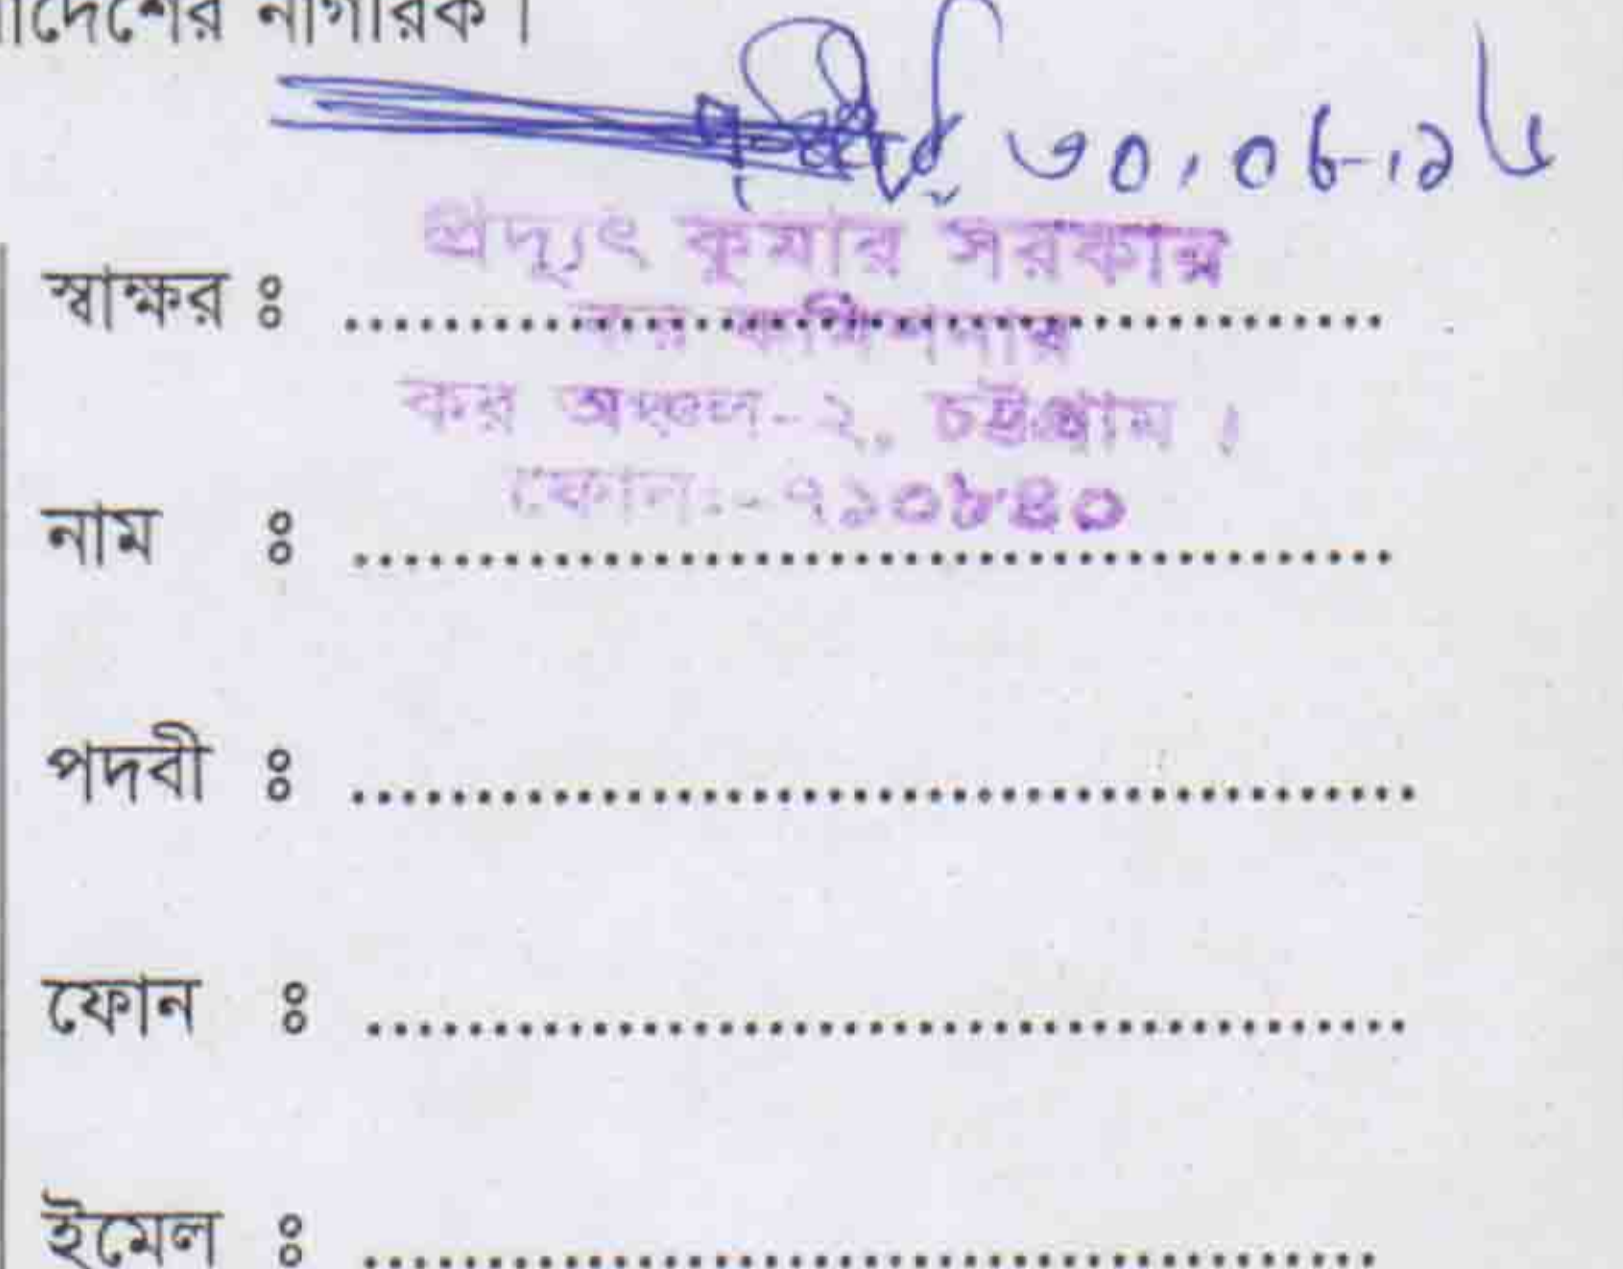 াদেশের নাগরিক।
৩০.০৬.১৬
প্রদ্যুৎ কুমার সরকার
স্বাক্ষর ঃ
কর কমিশনার
কর অঞ্চল-২, চট্টগ্রাম।
ফোন:-৭১০৮৪০
নাম ঃ
পদবী ঃ
ফোন ঃ
ইমেল ঃ